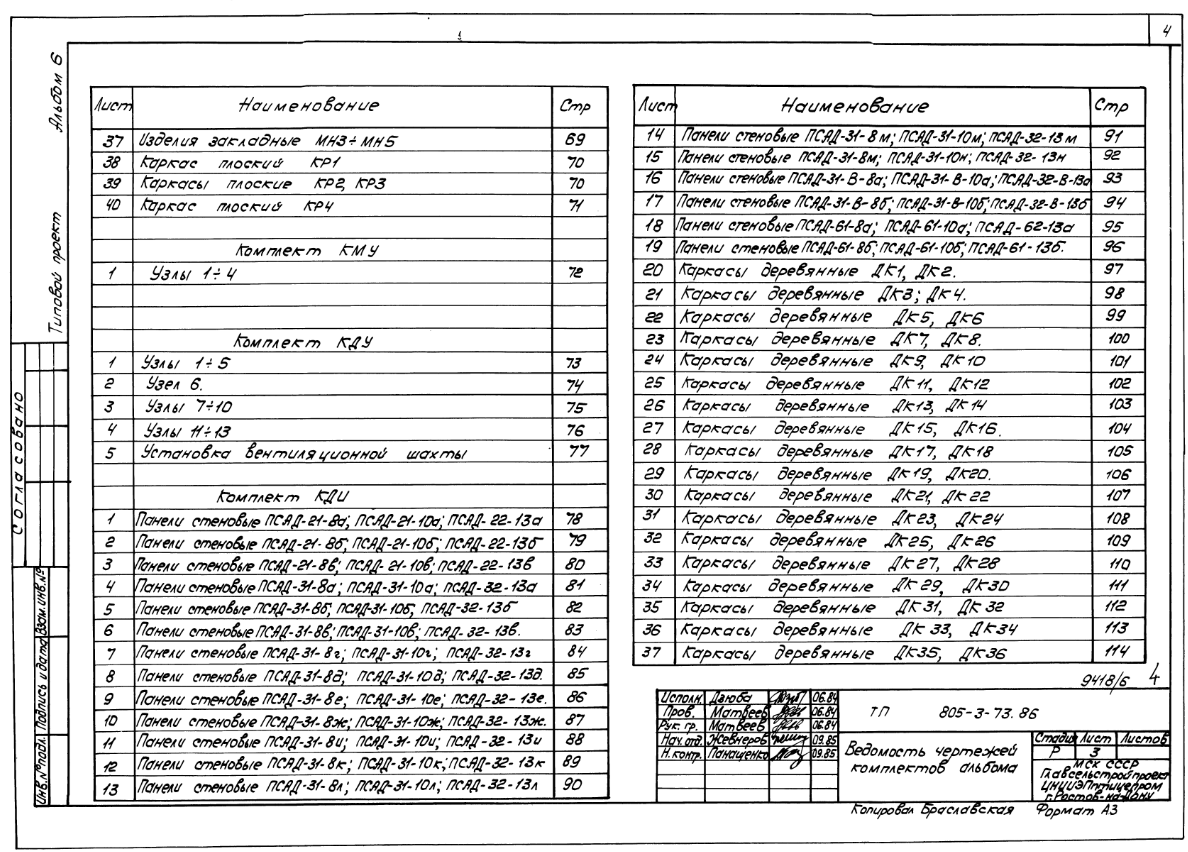 4
Альбом 6
Типовой проект
Согласовано
Взам.инв.№
Подпись и дата
Инв.№ подл.
Лист Наименование Стр
37 Изделия закладные МН3÷МН5 69
38 Каркас плоский КР1 70
39 Каркасы плоские КР2, КР3 70
40 Каркас плоский КР4 71
Комплект КМУ
1 Узлы 1÷4 72
Комплект КДУ
1 Узлы 1÷5 73
2 Узел 6. 74
3 Узлы 7÷10 75
4 Узлы 11÷13 76
5 Установка вентиляционной шахты 77
Комплект КДИ
1 Панели стеновые ПСАД-21-8а; ПСАД-21-10а; ПСАД-22-13а 78
2 Панели стеновые ПСАД-21-8б; ПСАД-21-10б; ПСАД-22-13б 79
3 Панели стеновые ПСАД-21-8в; ПСАД-21-10в; ПСАД-22-13в 80
4 Панели стеновые ПСАД-31-8а; ПСАД-31-10а; ПСАД-32-13а 81
5 Панели стеновые ПСАД-31-8б; ПСАД-31-10б; ПСАД-32-13б 82
6 Панели стеновые ПСАД-31-8в; ПСАД-31-10в; ПСАД-32-13в. 83
7 Панели стеновые ПСАД-31-8г; ПСАД-31-10г; ПСАД-32-13г 84
8 Панели стеновые ПСАД-31-8д; ПСАД-31-10д; ПСАД-32-13д. 85
9 Панели стеновые ПСАД-31-8е; ПСАД-31-10е; ПСАД-32-13е. 86
10 Панели стеновые ПСАД-31-8ж; ПСАД-31-10ж; ПСАД-32-13ж. 87
11 Панели стеновые ПСАД-31-8и; ПСАД-31-10и; ПСАД-32-13и 88
12 Панели стеновые ПСАД-31-8к; ПСАД-31-10к; ПСАД-32-13к 89
13 Панели стеновые ПСАД-31-8л; ПСАД-31-10л; ПСАД-32-13л 90
Лист Наименование Стр
14 Панели стеновые ПСАД-31-8м; ПСАД-31-10м; ПСАД-32-13м 91
15 Панели стеновые ПСАД-31-8м; ПСАД-31-10н; ПСАД-32-13н 92
16 Панели стеновые ПСАД-31-В-8а; ПСАД-31-В-10а; ПСАД-32-В-13а 93
17 Панели стеновые ПСАД-31-В-8б; ПСАД-31-В-10б; ПСАД-32-В-13б 94
18 Панели стеновые ПСАД-61-8а; ПСАД-61-10а; ПСАД-62-13а 95
19 Панели стеновые ПСАД-61-8б; ПСАД-61-10б; ПСАД-61-13б. 96
20 Каркасы деревянные ДК1, ДК2. 97
21 Каркасы деревянные ДК3; ДК4. 98
22 Каркасы деревянные ДК5, ДК6 99
23 Каркасы деревянные ДК7, ДК8. 100
24 Каркасы деревянные ДК9, ДК10 101
25 Каркасы деревянные ДК11, ДК12 102
26 Каркасы деревянные ДК13, ДК14 103
27 Каркасы деревянные ДК15, ДК16. 104
28 Каркасы деревянные ДК17, ДК18 105
29 Каркасы деревянные ДК19, ДК20. 106
30 Каркасы деревянные ДК21, ДК22 107
31 Каркасы деревянные ДК23, ДК24 108
32 Каркасы деревянные ДК25, ДК26 109
33 Каркасы деревянные ДК27, ДК28 110
34 Каркасы деревянные ДК29, ДК30 111
35 Каркасы деревянные ДК31, ДК32 112
36 Каркасы деревянные ДК33, ДК34 113
37 Каркасы деревянные ДК35, ДК36 114
9418/6 4
Исполн. Дзюба 06.84
Пров. Матвеев 06.84
Рук. гр. Матвеев 06.84
Нач. отд. Жевнеров 09.85
Н.контр. Панащенко 09.85
ТП 805-3-73.86
Ведомость чертежей
комплектов альбома
Стадия Лист Листов
Р 3
МСХ СССР
Главсельстройпроект
ЦНИИЭПптицепром
г.Ростов-на-Дону
Копировал Браславская Формат А3